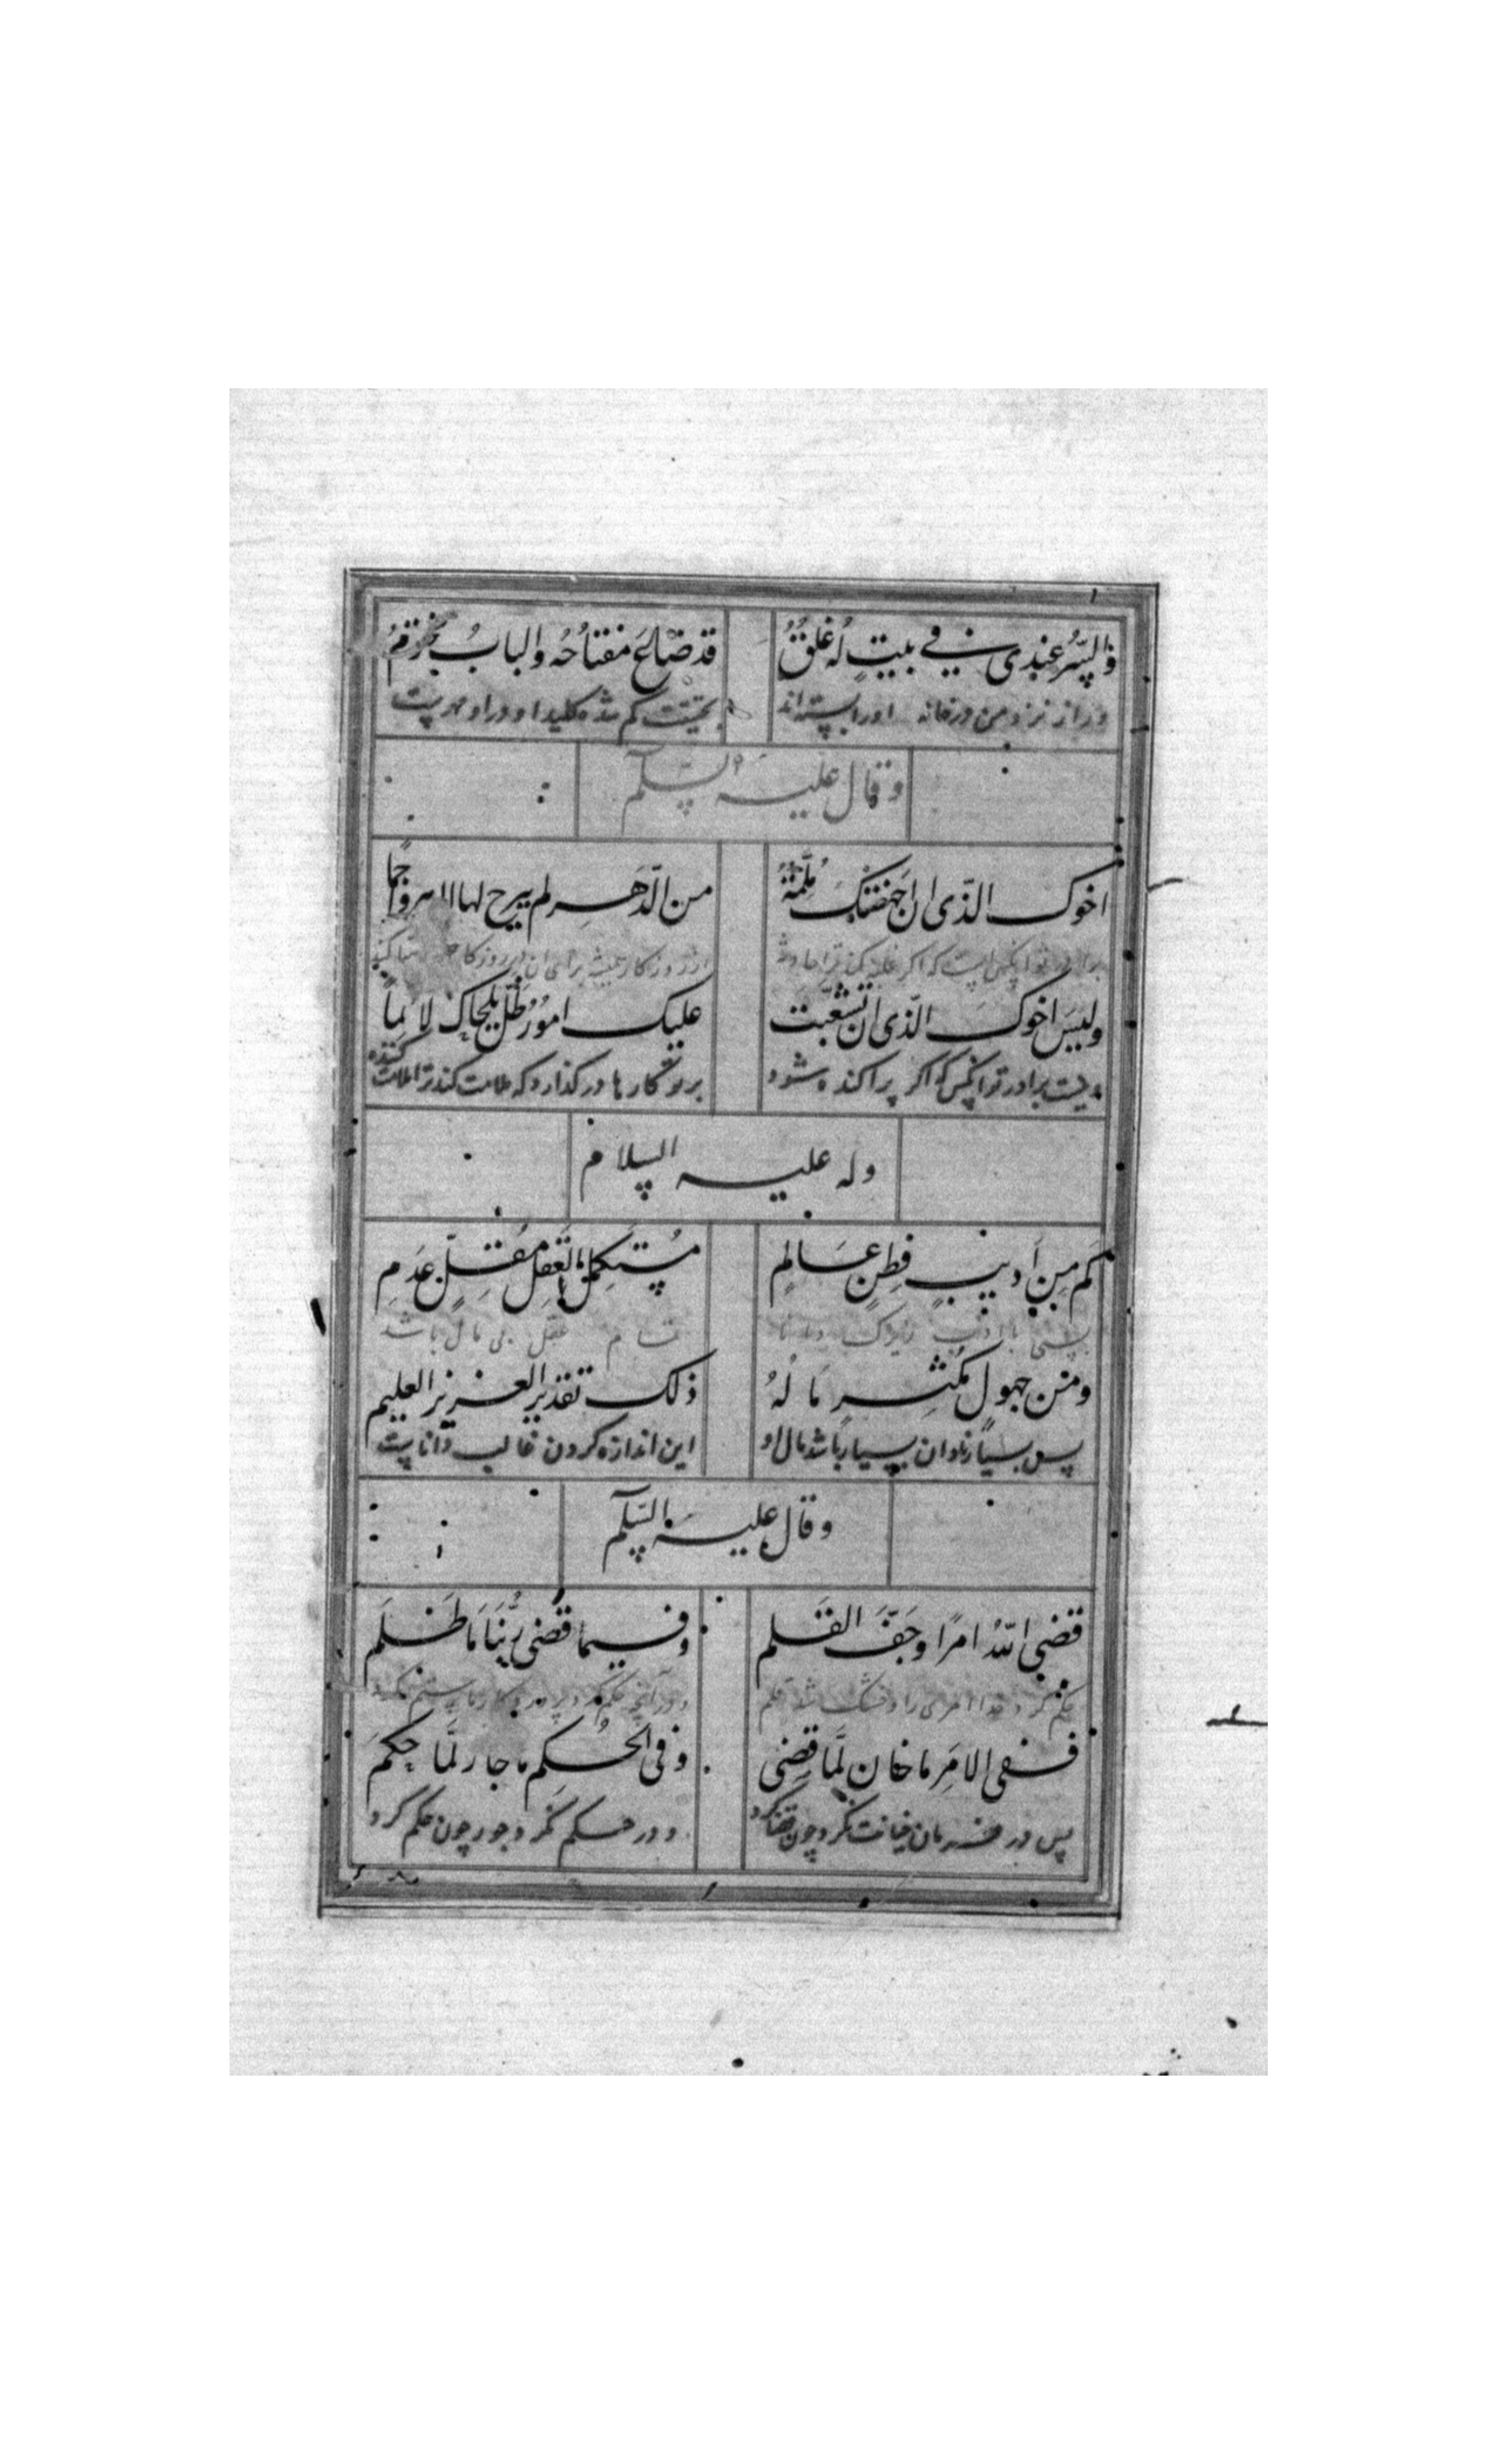 والسر عندی فی بیتٍ له غلقٌ قد ضاع مفتاحُه والبابُ مختومُ
وراز نزد من در خانه اورا بسته‌اند بتحقیق گم شده کلید او و در او مهریست
وقال علیه السلم
اخوک الذی ان اجهضتک مُلمّةٌ من الدّهرِ لم یبرح لها الدهر واجما
ولیسَ اخوک الذی ان تشعّبت علیک امورٌ ظلّ یلحاک لائما
ونیست برادر تو آنکس که اگر پراکنده شود بر تو کارها در گذارد که ملامت کند ترا ملامت کننده
وله علیه السلام
کم مِن اَدیبٍ فطِنٍ عَالمٍ مُستکمل العَقل مُقلٍّ عَدِمِ
تمام عقل بی مال باشد
ومن جهولٍ مُکثِرٍ مَا لهُ ذلک تقدیر العزیز العلیم
پس بسیار نادان بسیار باشد مال او این اندازه کردن غالب داناست
وقال علیه السلم
قضی اللهُ امرًا وجَفّ القَلم وفیما قضی ربُّنَا مَا ظَلَم
حکم کرد خدا امری را و خشک شد قلم
ففی الامَرِ ما خان لَمّا قضی وفی الحُکم ما جار لَمّا حکمَ
پس در فرمان خیانت نکرد چون قضا کرد و در حکم نکرد جور چون حکم کرد